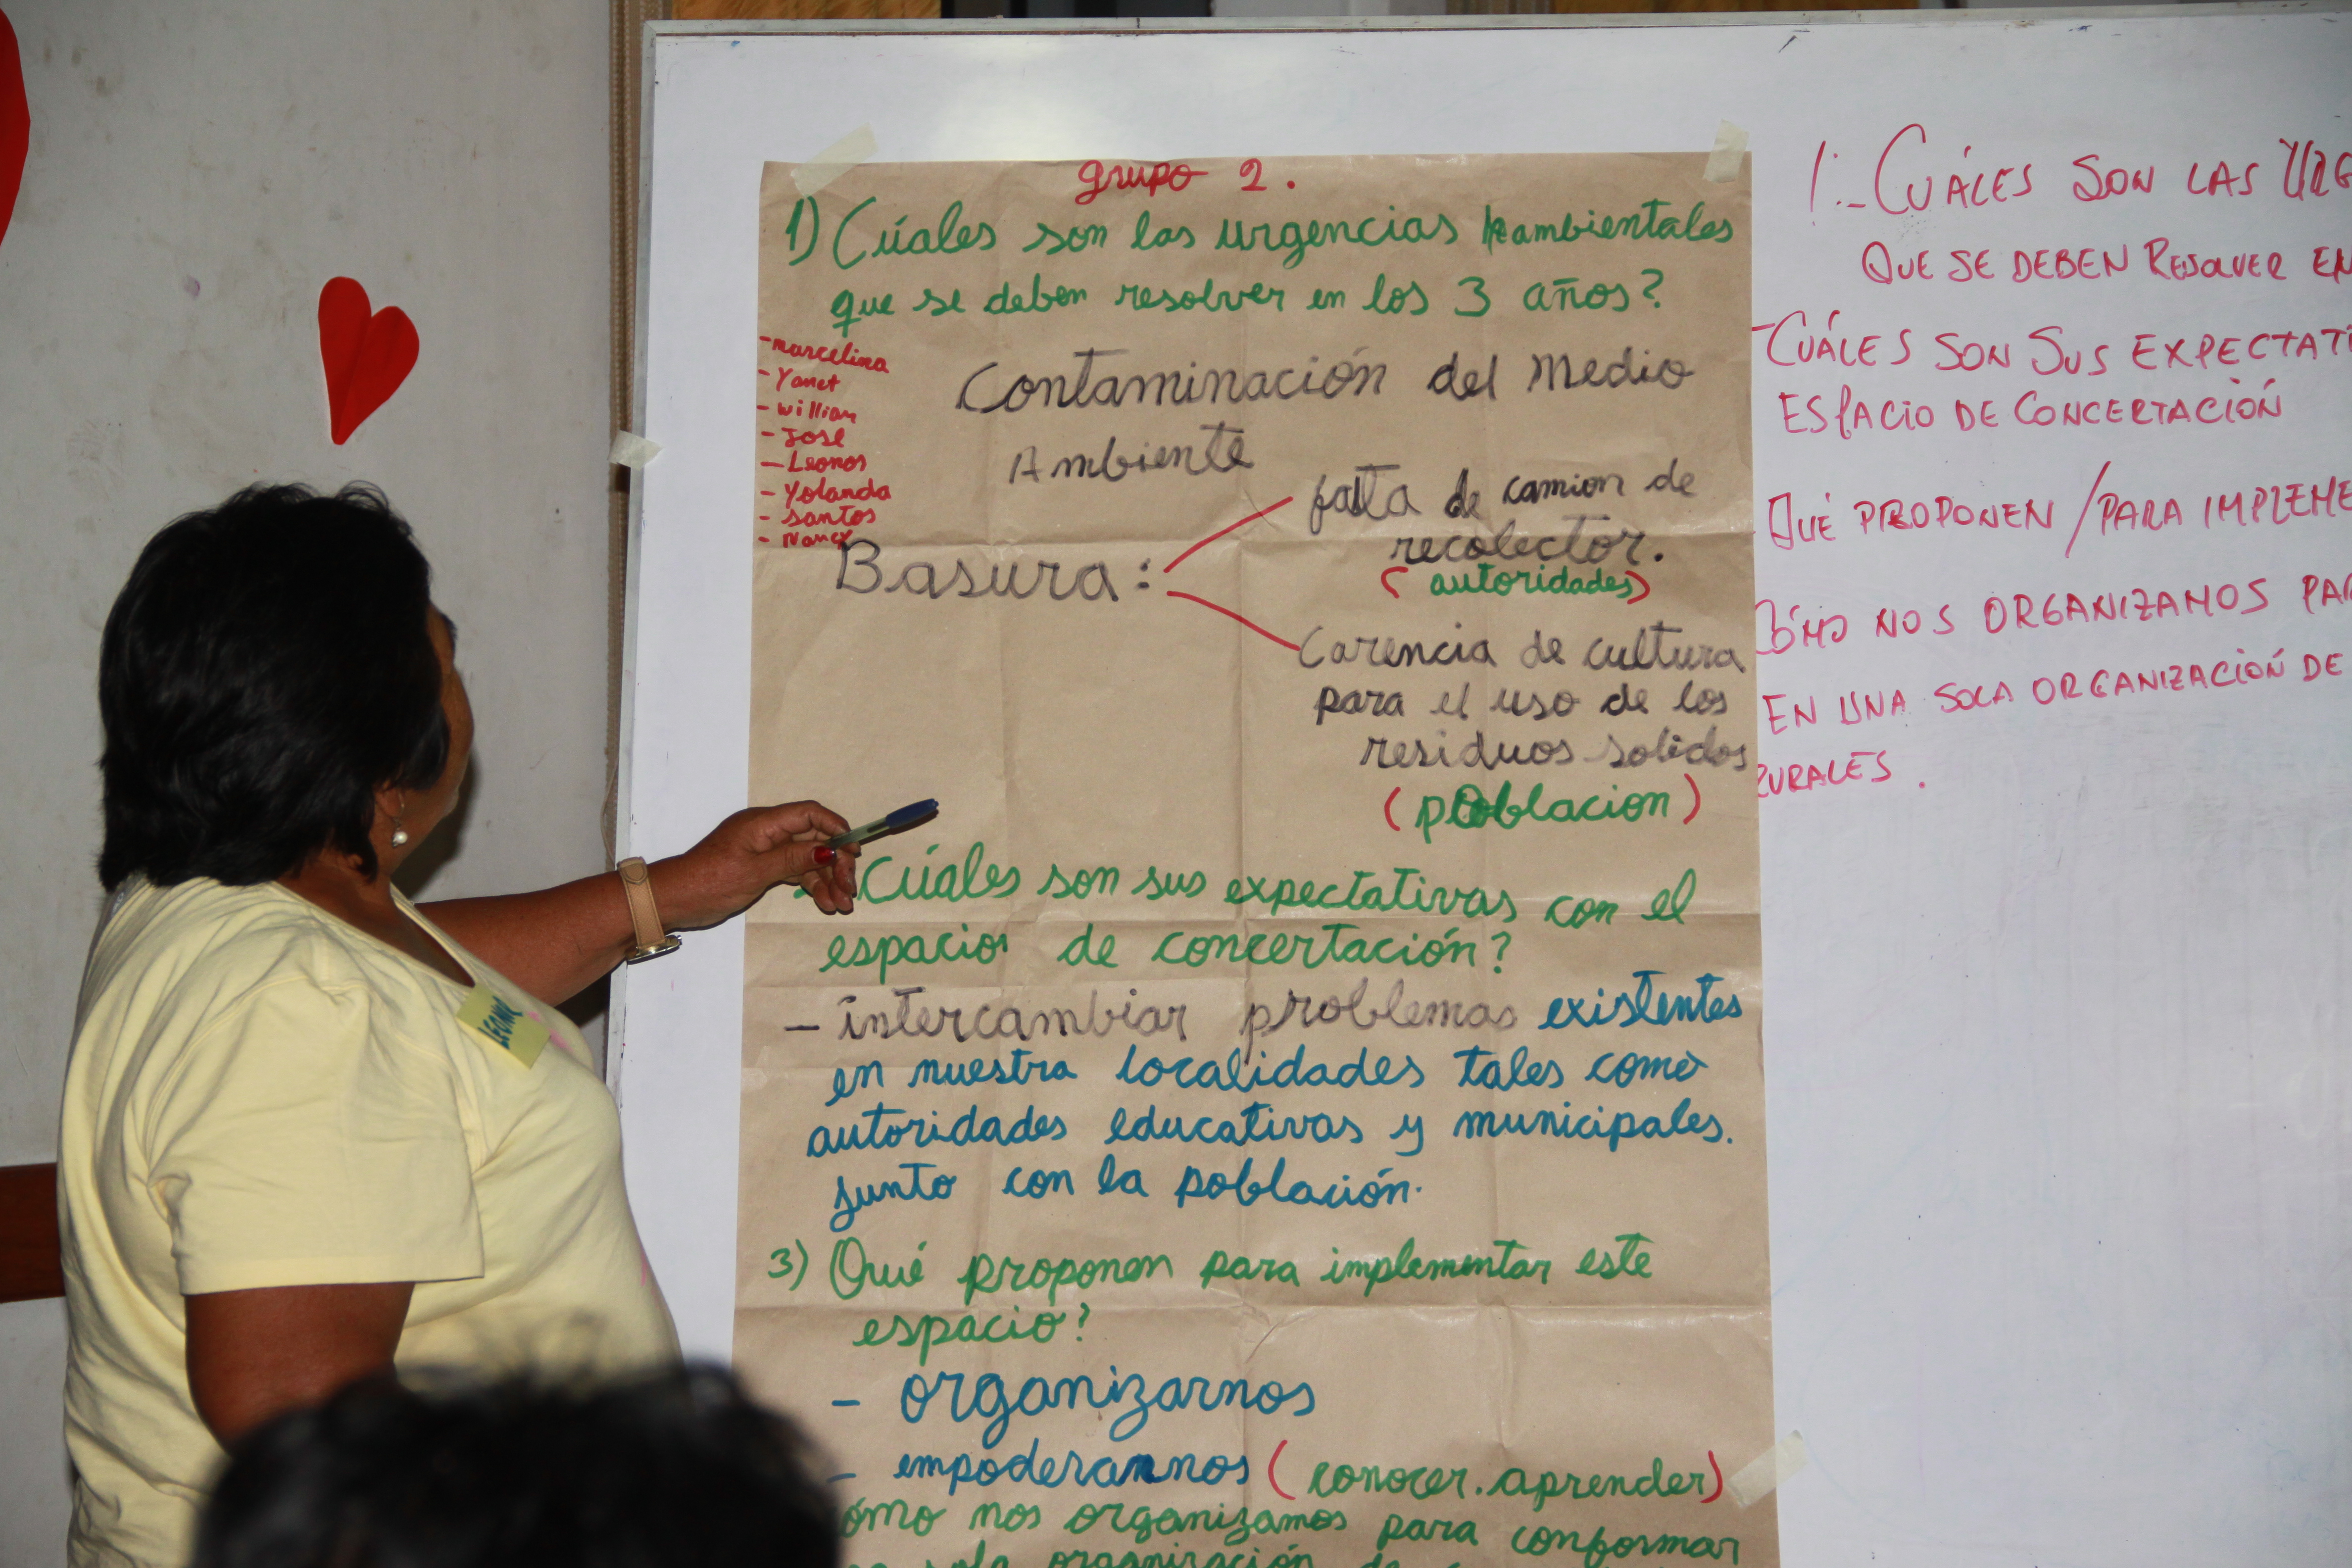 grupo 2.
1) Cúales son las urgencias ambientales
que se deben resolver en los 3 años?
- marcelina
- Yanet
- william
- Jose
- Leonor
- Yolanda
- santos
- Nancy
Contaminación del Medio
Ambiente
Basura:
falta de camion de
recolector.
(autoridades)
Carencia de cultura
para el uso de los
residuos solidos
(poblacion)
Cúales son sus expectativas con el
espacio de concertación?
- intercambiar problemas existentes
en nuestra localidades tales como
autoridades educativas y municipales.
junto con la población.
3) Qué proponen para implementar este
espacio?
- organizarnos
- empoderarnos (conocer. aprender)
ómo nos organizamos para conformar
sola organización de
1.- CUÁLES SON LAS URG
QUE SE DEBEN RESOLVER EN
- CUÁLES SON SUS EXPECTATI
ESPACIO DE CONCERTACIÓN
QUÉ PROPONEN / PARA IMPLEME
CÓMO NOS ORGANIZAMOS PAR
EN UNA SOLA ORGANIZACIÓN DE
RURALES.
LEONOR